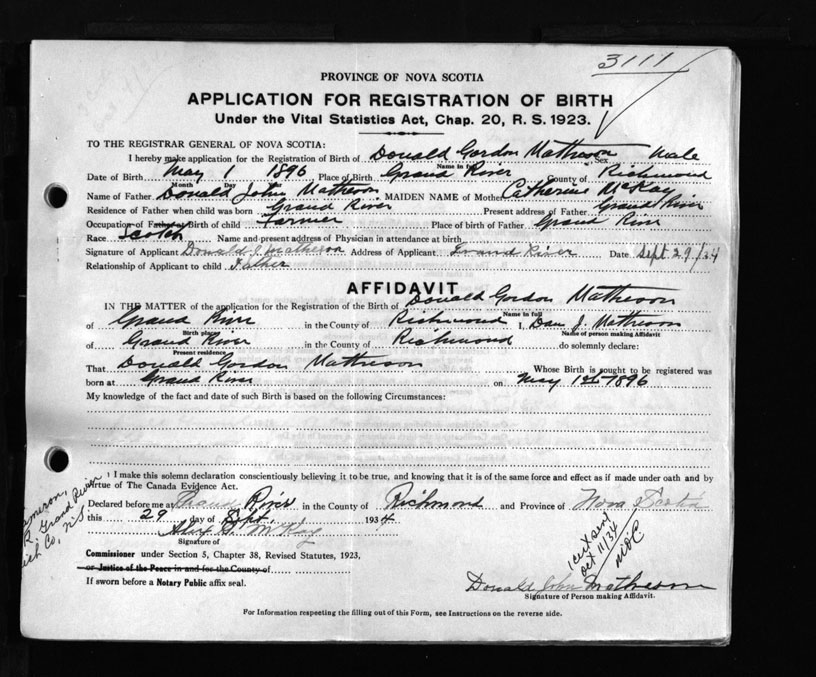 3111
PROVINCE OF NOVA SCOTIA
APPLICATION FOR REGISTRATION OF BIRTH
Under the Vital Statistics Act, Chap. 20, R. S. 1923.
TO THE REGISTRAR GENERAL OF NOVA SCOTIA:
I hereby make application for the Registration of Birth of Donald Gordon Matheson Sex Male
Name in full
Date of Birth May 1 1896 Place of Birth Grand River County of Richmond
Month Day
Name of Father Donald John Matheson MAIDEN NAME of Mother Catherine McKay
Residence of Father when child was born Grand River Present address of Father Grand River
Occupation of Father at Birth of child Farmer Place of birth of Father Grand River
Race Scotch Name and present address of Physician in attendance at birth
Signature of Applicant Donald J Matheson Address of Applicant Grand River Date Sept 29/34
Relationship of Applicant to child Father
AFFIDAVIT
IN THE MATTER of the application for the Registration of the Birth of Donald Gordon Matheson
Name in full
of Grand River in the County of Richmond I, Dan J. Matheson
Birth place Name of person making Affidavit
of Grand River in the County of Richmond do solemnly declare:
Present residence
That Donald Gordon Matheson Whose Birth is sought to be registered was
born at Grand River on May 1st 1896
My knowledge of the fact and date of such Birth is based on the following Circumstances:
I make this solemn declaration conscientiously believing it to be true, and knowing that it is of the same force and effect as if made under oath and by
virtue of The Canada Evidence Act.
Declared before me at Grand River in the County of Richmond and Province of Nova Scotia
this 29 day of Sept. 1934
Alex McKay
Signature of
Commissioner under Section 5, Chapter 38, Revised Statutes, 1923,
or Justice of the Peace in and for the County of
If sworn before a Notary Public affix seal.
1 cert sent
Oct 11/34
MDC
Donald John Matheson
Signature of Person making Affidavit.
For Information respecting the filling out of this Form, see Instructions on the reverse side.
Grand River
Co, N.S